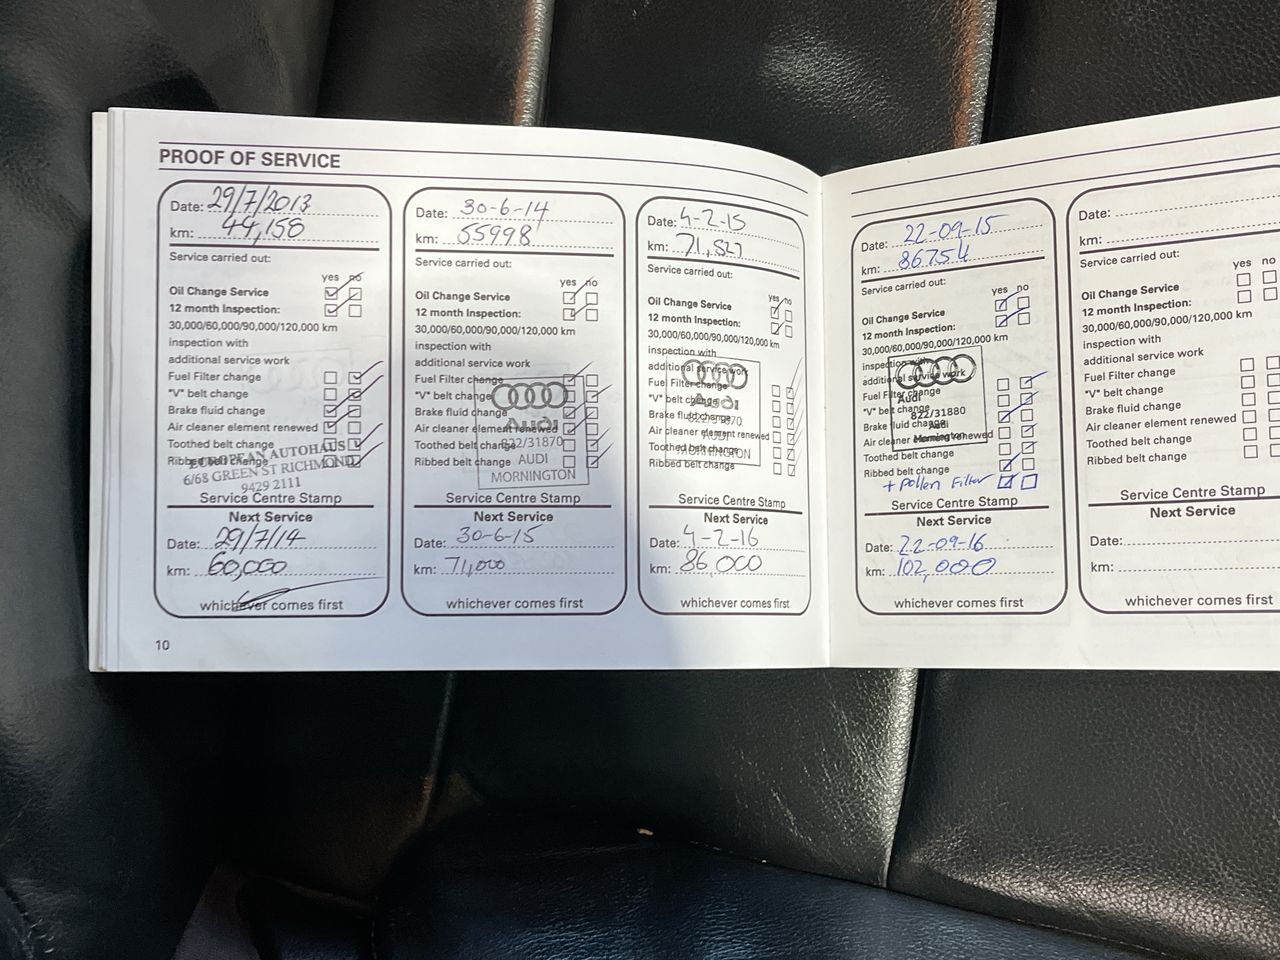 PROOF OF SERVICE
Date: 29/7/2013
km: 44,158
Service carried out:
yes no
Oil Change Service
12 month Inspection:
30,000/60,000/90,000/120,000 km
inspection with
additional service work
Fuel Filter change
"V" belt change
Brake fluid change
Air cleaner element renewed
Toothed belt change
Ribbed belt change
EUROPEAN AUTOHAUS
6/68 GREEN ST RICHMOND
9429 2111
Service Centre Stamp
Next Service
Date: 29/7/14
km: 60,000
whichever comes first
10
Date: 30-6-14
km: 55998
Service carried out:
yes no
Oil Change Service
12 month Inspection:
30,000/60,000/90,000/120,000 km
inspection with
additional service work
Fuel Filter change
"V" belt change
Brake fluid change
Air cleaner element renewed
Toothed belt change
Ribbed belt change
Audi
822/31870
AUDI
MORNINGTON
Service Centre Stamp
Next Service
Date: 30-6-15
km: 71,000
whichever comes first
Date: 4-2-15
km: 71,527
Service carried out:
yes no
Oil Change Service
12 month Inspection:
30,000/60,000/90,000/120,000 km
inspection with
additional service work
Fuel Filter change
"V" belt change
Brake fluid change
Air cleaner element renewed
Toothed belt change
Ribbed belt change
Audi
822/31870
AUDI
MORNINGTON
Service Centre Stamp
Next Service
Date: 4-2-16
km: 86,000
whichever comes first
Date: 22-09-15
km: 86754
Service carried out:
yes no
Oil Change Service
12 month Inspection:
30,000/60,000/90,000/120,000 km
inspection with
additional service work
Fuel Filter change
"V" belt change
Brake fluid change
Air cleaner element renewed
Toothed belt change
Ribbed belt change
+ Pollen Filter
Audi
822/31880
Audi
Mornington
Service Centre Stamp
Next Service
Date: 22-09-16
km: 102,000
whichever comes first
Date:
km:
Service carried out:
yes no
Oil Change Service
12 month Inspection:
30,000/60,000/90,000/120,000 km
inspection with
additional service work
Fuel Filter change
"V" belt change
Brake fluid change
Air cleaner element renewed
Toothed belt change
Ribbed belt change
Service Centre Stamp
Next Service
Date:
km:
whichever comes first